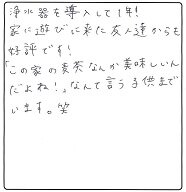 浄水器を導入して1年!
家に遊びに来た友人達からも
好評です!
「この家の麦茶なんか美味しいん
だよね!」なんて言う子供まで
います。笑